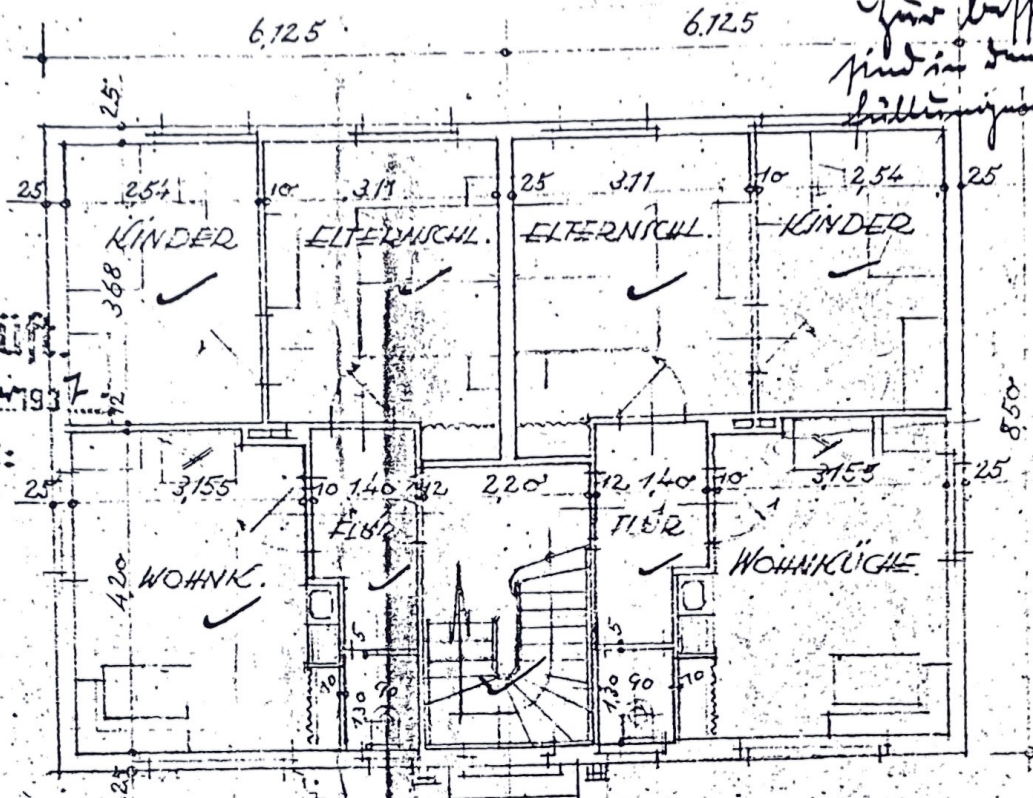 6,125
6,125
25
sind in den
25
2,54
10
3.11
25
3.11
10
2,54
25
KINDER
ELTERNSCHL.
ELTERNSCHL.
KINDER
368
1937
12
850
25
3,155
10
1.40
12
2,20
12
1,40
10
3,155
25
FLUR
FLUR
WOHNK.
WOHNKÜCHE.
4,20
5
5
10
1.30
90
1.30
90
10
25